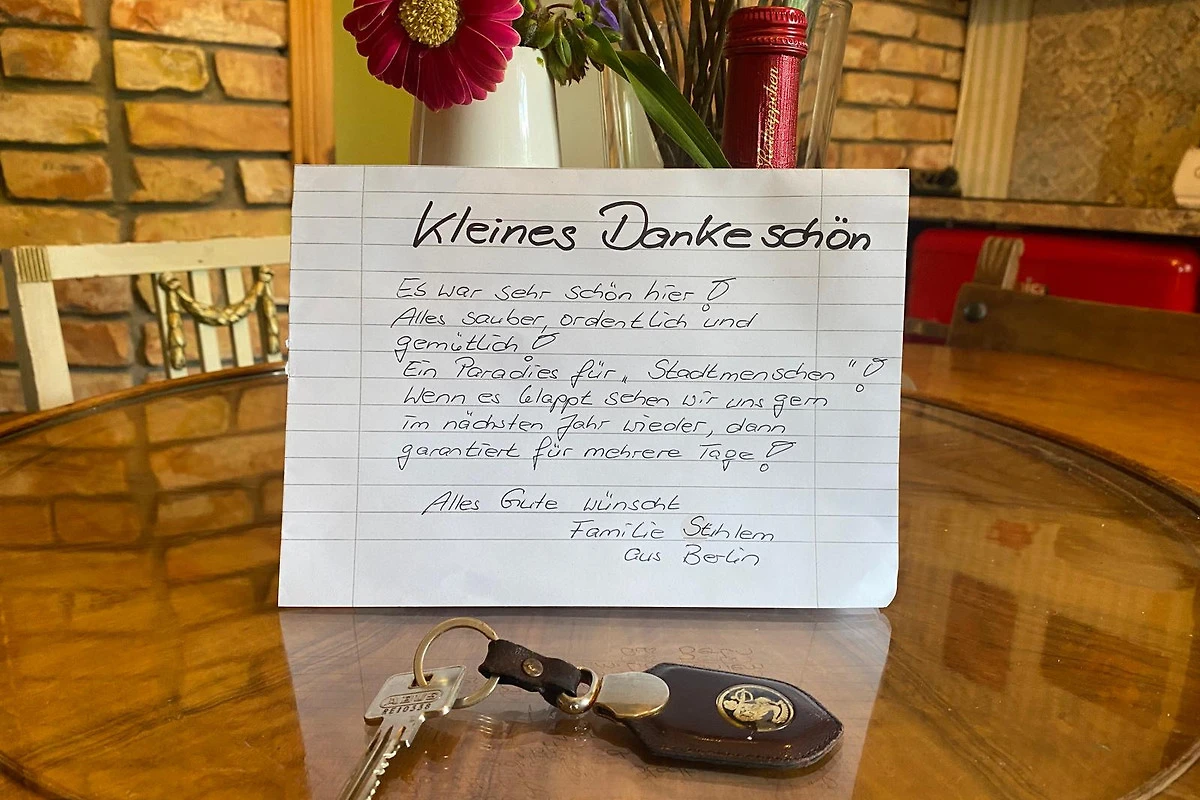 Rotkäppchen
Kleines Dankeschön
Es war sehr schön hier!
Alles sauber, ordentlich und
gemütlich!
Ein Paradies für „Stadtmenschen"!
Wenn es klappt sehen wir uns gern
im nächsten Jahr wieder, dann
garantiert für mehrere Tage!
Alles Gute wünscht
Familie Stihlem
aus Berlin
ABUS
RE10338